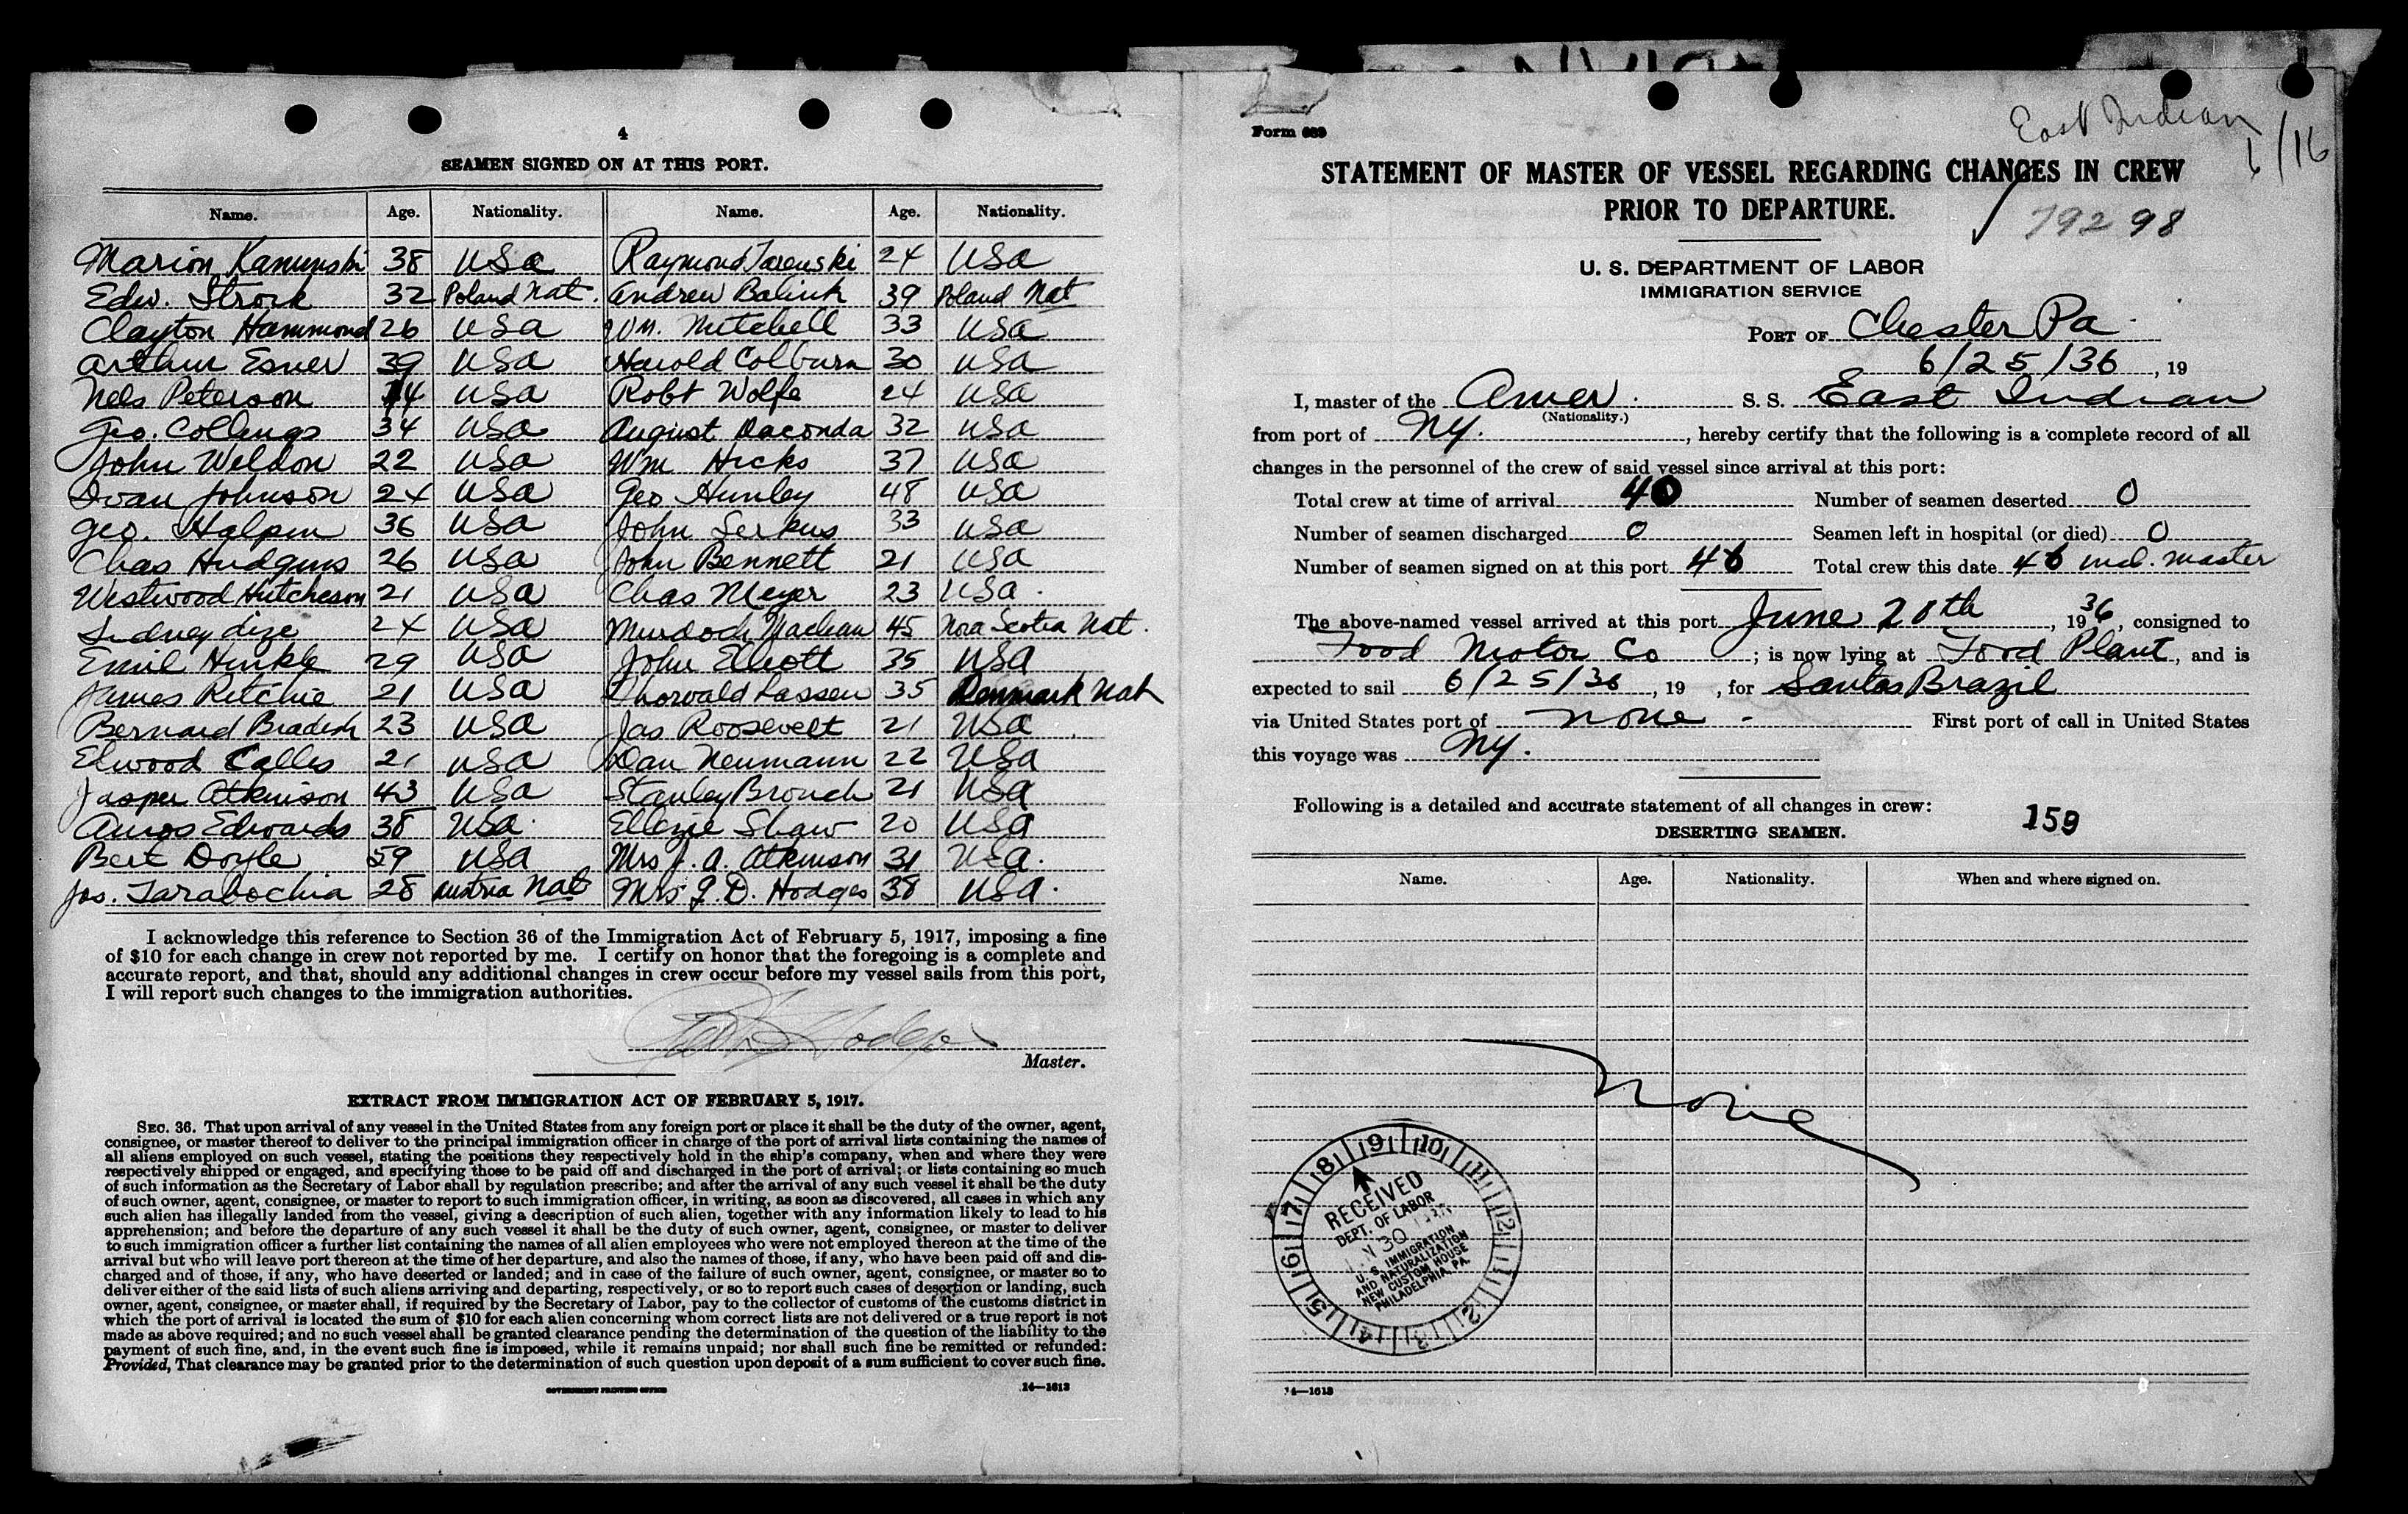 4
SEAMEN SIGNED ON AT THIS PORT.
Name. Age. Nationality. Name. Age. Nationality.
Marion Kanunski 38 USA Raymond Tarenski 24 USA
Edw. Strock 32 Poland Nat. Andrew Balint 39 Poland Nat
Clayton Hammond 26 USA Wm. Mitchell 33 USA
Arthur Esner 39 USA Harold Colburn 30 USA
Nels Peterson 44 USA Robt Wolfe 24 USA
Geo. Collings 34 USA August Daconda 32 USA
John Weldon 22 USA Wm Hicks 37 USA
Ivan Johnson 24 USA Geo Hunley 48 USA
Geo. Halpin 36 USA John Serkus 33 USA
Chas Hudgins 26 USA John Bennett 21 USA
Westwood Hutcheson 21 USA Chas Meyer 23 USA.
Sidney Dize 24 USA Murdoch Maclean 45 Nova Scotia Nat.
Emil Hinkle 29 USA John Elliott 35 USA
James Ritchie 21 USA Thorvald Lassen 35 Denmark Nat
Bernard Bradish 23 USA Jas Roosevelt 21 USA
Elwood Callis 21 USA Dan Neumann 22 USA
Jasper Atkinson 43 USA Stanley Brouch 21 USA
Amos Edwards 38 USA Shaw 20 USA
Bert Doyle 59 USA Mrs J. A. Atkinson 31 USA.
Jos. Tarabochia 28 Austria Nat Mrs G. D. Hodges 38 USA.
I acknowledge this reference to Section 36 of the Immigration Act of February 5, 1917, imposing a fine
of $10 for each change in crew not reported by me. I certify on honor that the foregoing is a complete and
accurate report, and that, should any additional changes in crew occur before my vessel sails from this port,
I will report such changes to the immigration authorities.
Hodges
Master.
EXTRACT FROM IMMIGRATION ACT OF FEBRUARY 5, 1917.
SEC. 36. That upon arrival of any vessel in the United States from any foreign port or place it shall be the duty of the owner, agent,
consignee, or master thereof to deliver to the principal immigration officer in charge of the port of arrival lists containing the names of
all aliens employed on such vessel, stating the positions they respectively hold in the ship's company, when and where they were
respectively shipped or engaged, and specifying those to be paid off and discharged in the port of arrival; or lists containing so much
of such information as the Secretary of Labor shall by regulation prescribe; and after the arrival of any such vessel it shall be the duty
of such owner, agent, consignee, or master to report to such immigration officer, in writing, as soon as discovered, all cases in which any
such alien has illegally landed from the vessel, giving a description of such alien, together with any information likely to lead to his
apprehension; and before the departure of any such vessel it shall be the duty of such owner, agent, consignee, or master to deliver
to such immigration officer a further list containing the names of all alien employees who were not employed thereon at the time of the
arrival but who will leave port thereon at the time of her departure, and also the names of those, if any, who have been paid off and dis-
charged and of those, if any, who have deserted or landed; and in case of the failure of such owner, agent, consignee, or master so to
deliver either of the said lists of such aliens arriving and departing, respectively, or so to report such cases of desertion or landing, such
owner, agent, consignee, or master shall, if required by the Secretary of Labor, pay to the collector of customs of the customs district in
which the port of arrival is located the sum of $10 for each alien concerning whom correct lists are not delivered or a true report is not
made as above required; and no such vessel shall be granted clearance pending the determination of the question of the liability to the
payment of such fine, and, in the event such fine is imposed, while it remains unpaid; nor shall such fine be remitted or refunded:
Provided, That clearance may be granted prior to the determination of such question upon deposit of a sum sufficient to cover such fine.
GOVERNMENT PRINTING OFFICE 14—1613
East Indian
6/16
Form 689
STATEMENT OF MASTER OF VESSEL REGARDING CHANGES IN CREW
PRIOR TO DEPARTURE.
79298
U. S. DEPARTMENT OF LABOR
IMMIGRATION SERVICE
PORT OF Chester Pa.
6/25/36, 19
I, master of the Amer. S. S. East Indian
(Nationality.)
from port of NY., hereby certify that the following is a complete record of all
changes in the personnel of the crew of said vessel since arrival at this port:
Total crew at time of arrival 40 Number of seamen deserted 0
Number of seamen discharged 0 Seamen left in hospital (or died) 0
Number of seamen signed on at this port 40 Total crew this date 40 incl. master
The above-named vessel arrived at this port June 20th, 1936, consigned to
Ford Motor Co; is now lying at Ford Plant, and is
expected to sail 6/25/36, 19 , for Santos Brazil
via United States port of none - First port of call in United States
this voyage was NY.
Following is a detailed and accurate statement of all changes in crew:
159
DESERTING SEAMEN.
Name. Age. Nationality. When and where signed on.
None
RECEIVED
DEPT. OF LABOR
30
U. S. IMMIGRATION
AND NATURALIZATION
NEW CUSTOM HOUSE
PHILADELPHIA, PA.
9 10 11 12 1 2 3 4 5 6 7 8
14—1613